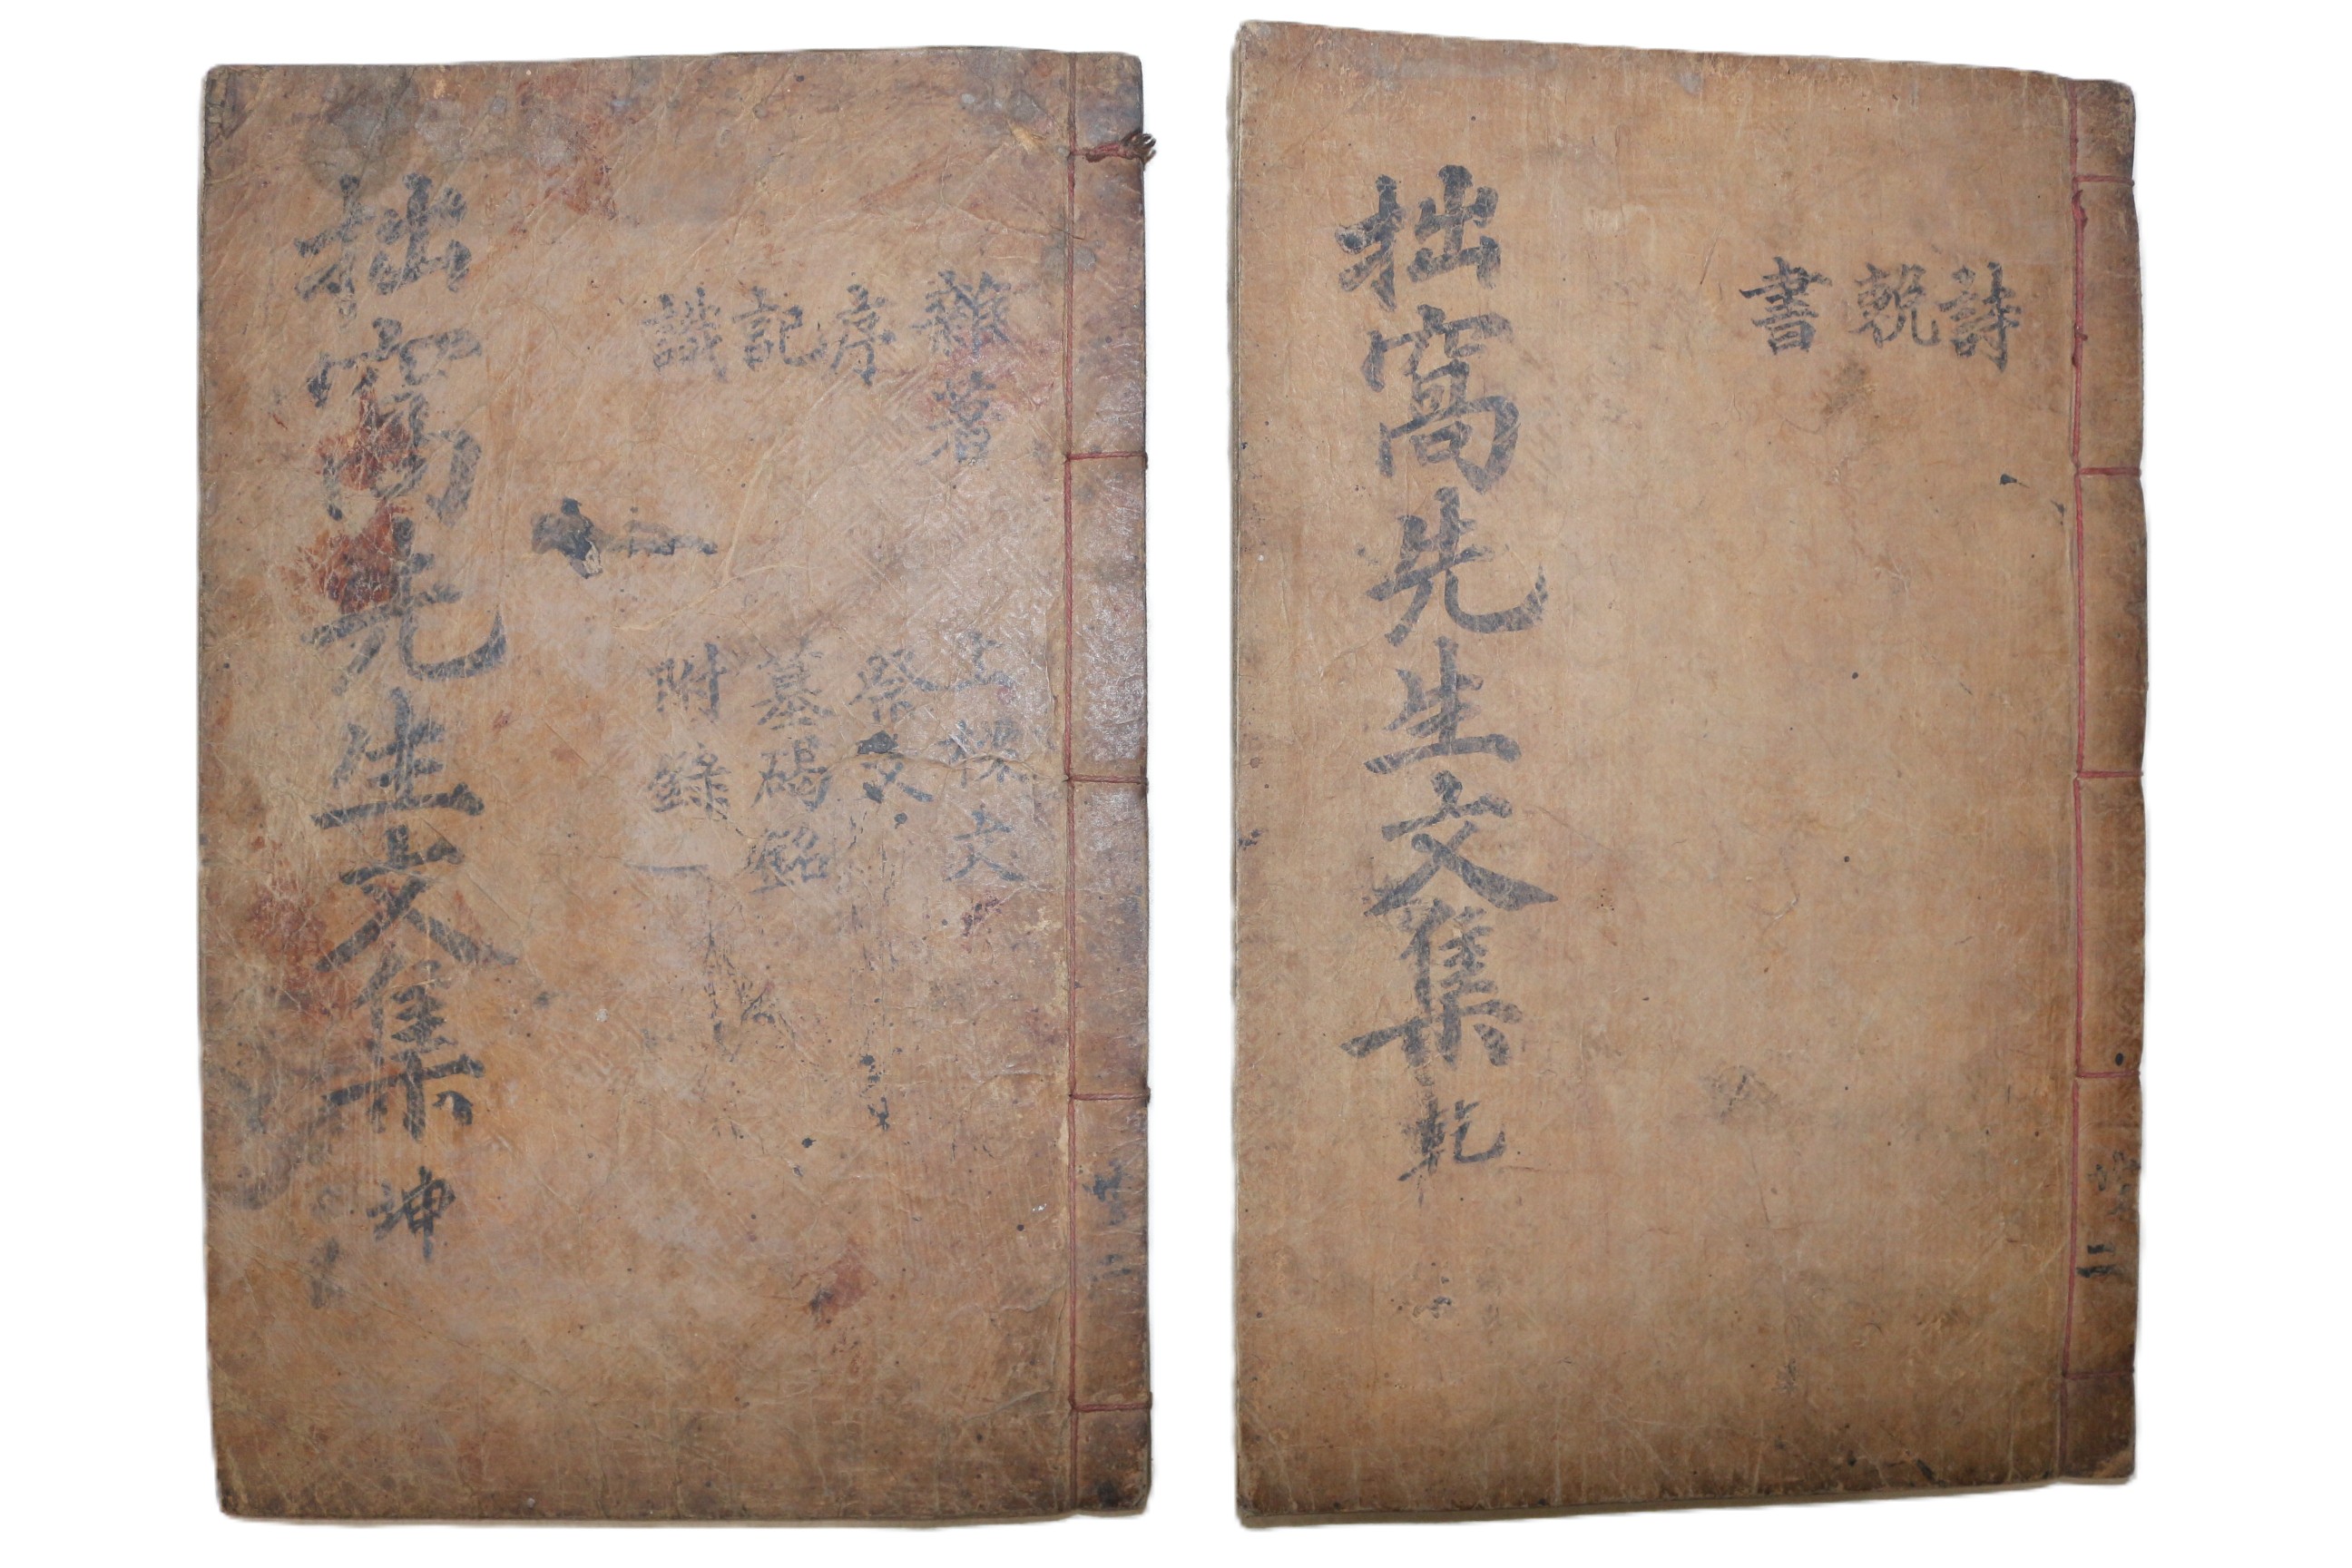 詩
輓
書
拙窩先生文集 乾
雜著
序
記
識
上樑文
祭文
墓碣銘
附錄
拙窩先生文集 坤